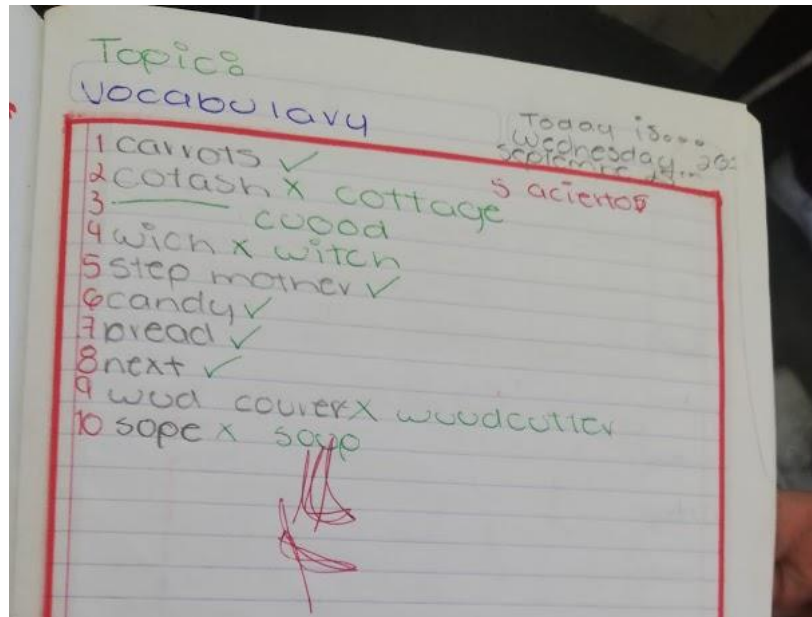 Topic:
Vocabulary
Today is...
Wednesday, 20
septembre
5 aciertos
1 carrots ✓
2 cotash x cottage
3 ______ cuood
4 wich x witch
5 step mother ✓
6 candy ✓
7 bread ✓
8 next ✓
9 wud couter x woodcutter
10 sope x soup